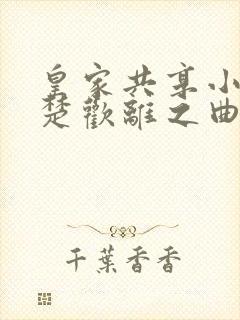 皇家共享小
楚歡離之曲
千葉香香